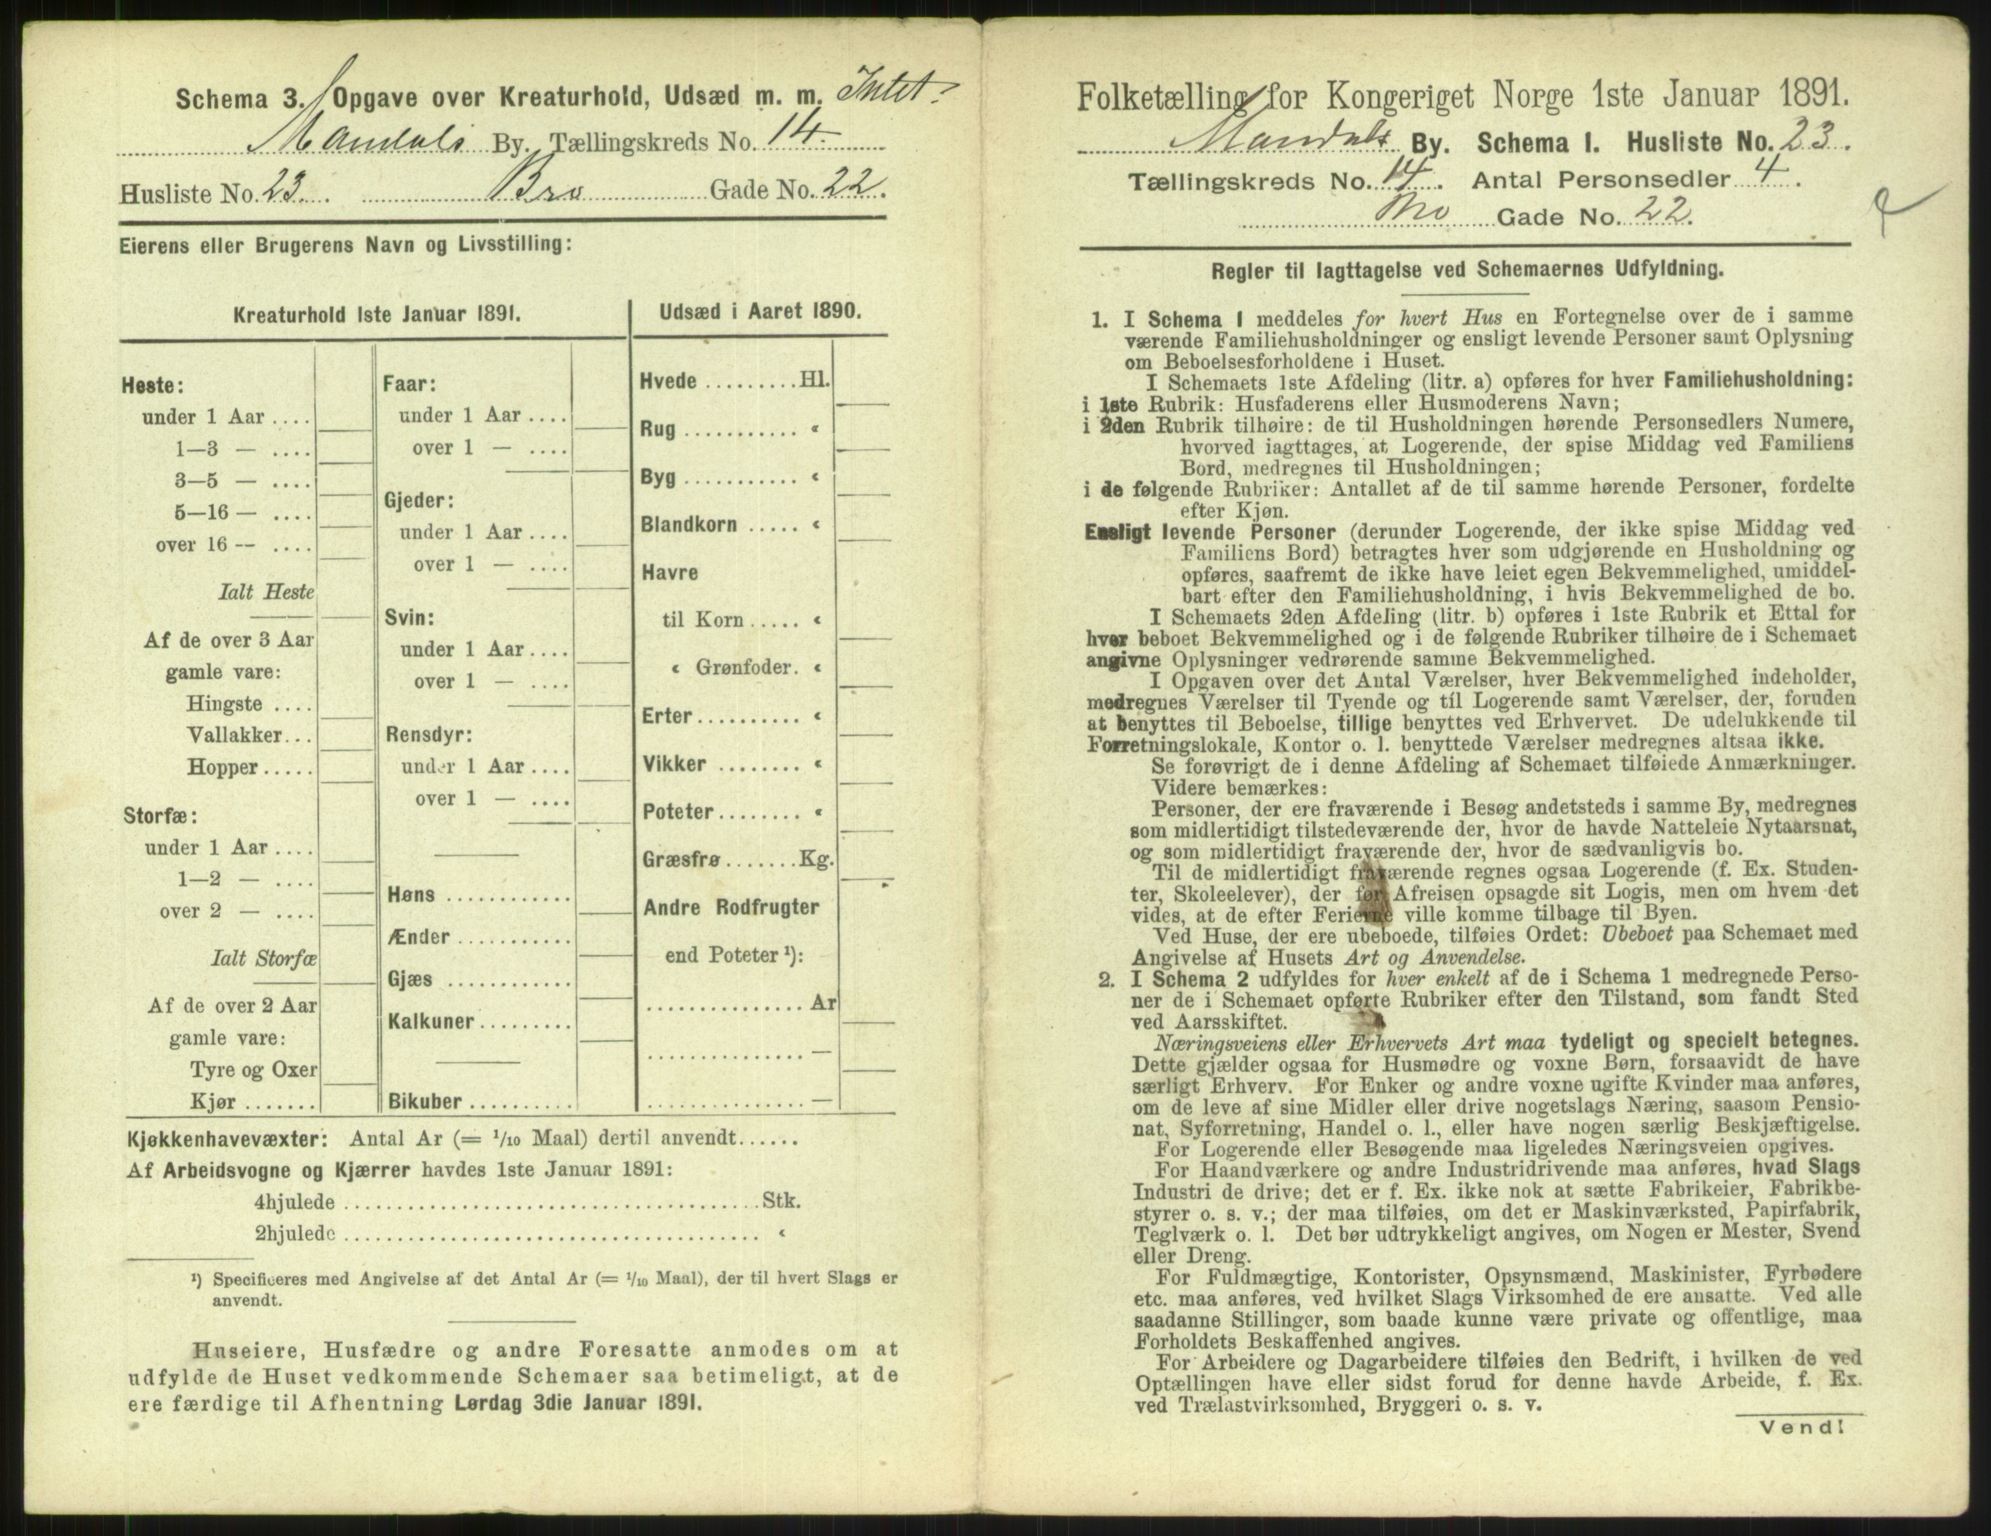 Schema 3. Opgave over Kreaturhold, Udsæd m. m. Intet.
Mandals By. Tællingskreds No. 14.
Husliste No. 23. Bro Gade No. 22.
Eierens eller Brugerens Navn og Livsstilling:
Kreaturhold 1ste Januar 1891.
Heste:
under 1 Aar ....
1—3 — ....
3—5 — ....
5—16 — ....
over 16 -- ....
Ialt Heste
Af de over 3 Aar
gamle vare:
Hingste ....
Vallakker...
Hopper.....
Storfæ:
under 1 Aar ....
1—2 — ....
over 2 — ....
Ialt Storfæ
Af de over 2 Aar
gamle vare:
Tyre og Oxer
Kjør .......
Faar:
under 1 Aar ....
over 1 — ....
Gjeder:
under 1 Aar ....
over 1 — ....
Svin:
under 1 Aar ....
over 1 — ....
Rensdyr:
under 1 Aar ....
over 1 — ....
Høns ............
Ænder ...........
Gjæs ............
Kalkuner.........
Bikuber ..........
Udsæd i Aaret 1890.
Hvede .........Hl.
Rug ........... «
Byg ........... «
Blandkorn ..... «
Havre
til Korn ..... «
« Grønfoder. «
Erter.......... «
Vikker ........ «
Poteter........ «
Græsfrø .......Kg.
Andre Rodfrugter
end Poteter ¹):
............... Ar
............... —
............... —
Kjøkkenhavevæxter: Antal Ar (= 1/10 Maal) dertil anvendt......
Af Arbeidsvogne og Kjærrer havdes 1ste Januar 1891:
4hjulede ........................................Stk.
2hjulede ........................................ «
¹) Specificeres med Angivelse af det Antal Ar (= 1/10 Maal), der til hvert Slags er
anvendt.
Huseiere, Husfædre og andre Foresatte anmodes om at
udfylde de Huset vedkommende Schemaer saa betimeligt, at de
ere færdige til Afhentning Lørdag 3die Januar 1891.
Folketælling for Kongeriget Norge 1ste Januar 1891.
Mandals By. Schema I. Husliste No. 23.
Tællingskreds No. 14. Antal Personsedler 4.
Bro Gade No. 22.
Regler til Iagttagelse ved Schemaernes Udfyldning.
1. I Schema I meddeles for hvert Hus en Fortegnelse over de i samme
værende Familiehusholdninger og ensligt levende Personer samt Oplysning
om Beboelsesforholdene i Huset.
I Schemaets 1ste Afdeling (litr. a) opføres for hver Familiehusholdning:
i 1ste Rubrik: Husfaderens eller Husmoderens Navn;
i 2den Rubrik tilhøire: de til Husholdningen hørende Personsedlers Numere,
hvorved iagttages, at Logerende, der spise Middag ved Familiens
Bord, medregnes til Husholdningen;
i de følgende Rubriker: Antallet af de til samme hørende Personer, fordelte
efter Kjøn.
Ensligt levende Personer (derunder Logerende, der ikke spise Middag ved
Familiens Bord) betragtes hver som udgjørende en Husholdning og
opføres, saafremt de ikke have leiet egen Bekvemmelighed, umiddel-
bart efter den Familiehusholdning, i hvis Bekvemmelighed de bo.
I Schemaets 2den Afdeling (litr. b) opføres i 1ste Rubrik et Ettal for
hver beboet Bekvemmelighed og i de følgende Rubriker tilhøire de i Schemaet
angivne Oplysninger vedrørende samme Bekvemmelighed.
I Opgaven over det Antal Værelser, hver Bekvemmelighed indeholder,
medregnes Værelser til Tyende og til Logerende samt Værelser, der, foruden
at benyttes til Beboelse, tillige benyttes ved Erhvervet. De udelukkende til
Forretningslokale, Kontor o. l. benyttede Værelser medregnes altsaa ikke.
Se forøvrigt de i denne Afdeling af Schemaet tilføiede Anmærkninger.
Videre bemærkes:
Personer, der ere fraværende i Besøg andetsteds i samme By, medregnes
som midlertidigt tilstedeværende der, hvor de havde Natteleie Nytaarsnat,
og som midlertidigt fraværende der, hvor de sædvanligvis bo.
Til de midlertidigt fraværende regnes ogsaa Logerende (f. Ex. Studen-
ter, Skoleelever), der før Afreisen opsagde sit Logis, men om hvem det
vides, at de efter Ferierne ville komme tilbage til Byen.
Ved Huse, der ere ubeboede, tilføies Ordet: Ubeboet paa Schemaet med
Angivelse af Husets Art og Anvendelse.
2. I Schema 2 udfyldes for hver enkelt af de i Schema 1 medregnede Perso-
ner de i Schemaet opførte Rubriker efter den Tilstand, som fandt Sted
ved Aarsskiftet.
Næringsveiens eller Erhvervets Art maa tydeligt og specielt betegnes.
Dette gjælder ogsaa for Husmødre og voxne Børn, forsaavidt de have
særligt Erhverv. For Enker og andre voxne ugifte Kvinder maa anføres,
om de leve af sine Midler eller drive nogetslags Næring, saasom Pensio-
nat, Syforretning, Handel o. l., eller have nogen særlig Beskjæftigelse.
For Logerende eller Besøgende maa ligeledes Næringsveien opgives.
For Haandværkere og andre Industridrivende maa anføres, hvad Slags
Industri de drive; det er f. Ex. ikke nok at sætte Fabrikeier, Fabrikbe-
styrer o. s. v.; der maa tilføies, om det er Maskinværksted, Papirfabrik,
Teglværk o. l. Det bør udtrykkeligt angives, om Nogen er Mester, Svend
eller Dreng.
For Fuldmægtige, Kontorister, Opsynsmænd, Maskinister, Fyrbødere
etc. maa anføres, ved hvilket Slags Virksomhed de ere ansatte. Ved alle
saadanne Stillinger, som baade kunne være private og offentlige, maa
Forholdets Beskaffenhed angives.
For Arbeidere og Dagarbeidere tilføies den Bedrift, i hvilken de ved
Optællingen have eller sidst forud for denne havde Arbeide, f. Ex.
ved Trælastvirksomhed, Bryggeri o. s. v.
Vend!